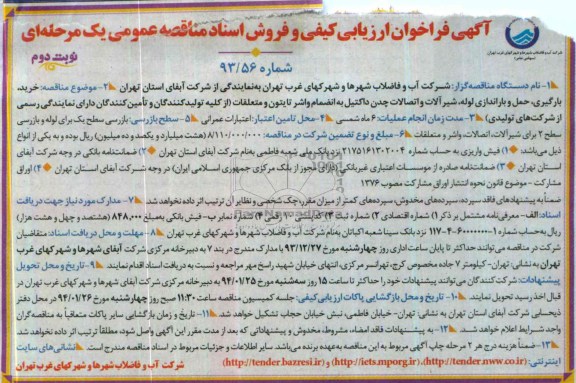 شرکت آب و فاضلاب شهرها و شهرکهای غرب تهران
(سهامی خاص)
آگهی فراخوان ارزیابی کیفی و فروش اسناد مناقصه عمومی یک مرحله‌ای
شماره ۹۳/۵۶
نوبت دوم
۱- نام دستگاه مناقصه‌گزار: شرکت آب و فاضلاب شهرها و شهرکهای غرب تهران به‌نمایندگی از شرکت آبفای استان تهران ۲- موضوع مناقصه: خرید،
بارگیری، حمل و باراندازی لوله، شیرآلات و اتصالات چدن داکتیل به‌انضمام واشر تایتون و متعلقات (از کلیه تولیدکنندگان و تأمین‌کنندگان دارای نمایندگی رسمی
از شرکت‌های تولیدی) ۳- مدت زمان انجام عملیات: ۶ ماه شمسی ۴- محل تامین اعتبار: اعتبارات عمرانی ۵- سطح بازرسی: بازرسی سطح یک برای لوله و بازرسی
سطح ۲ برای شیرآلات، اتصالات، واشر و متعلقات ۶- مبلغ و نوع تضمین شرکت در مناقصه: ۸/۱۱۰/۰۰۰/۰۰۰ (هشت میلیارد و یکصد و ده میلیون) ریال بوده و به یکی از انواع
ذیل می‌باشد: ۱) فیش واریزی به حساب شماره ۲۱۷۵۱۶۱۳۰۲۰۰۴ نزد بانک ملی شعبه فاطمی به‌نام شرکت آبفای استان تهران ۲) ضمانتنامه بانکی در وجه شرکت آبفای
استان تهران ۳) ضمانتنامه صادره از موسسات اعتباری غیربانکی (دارای مجوز از بانک مرکزی جمهوری اسلامی ایران) در وجه شرکت آبفای استان تهران ۴) اوراق
مشارکت - موضوع قانون نحوه انتشار اوراق مشارکت مصوب ۱۳۷۶
ضمناً به پیشنهادهای فاقد سپرده، سپرده‌های مخدوش، سپرده‌های کمتر از میزان مقرر، چک شخصی و نظایر آن ترتیب اثر داده نخواهد شد. ۷- مدارک مورد نیاز جهت دریافت
اسناد: الف- معرفی‌نامه مشتمل بر ذکر ۱) شماره اقتصادی ۲) شماره ثبت ۳) کدپستی ۱۰ رقمی ۴) شماره نمابر ب- فیش بانکی به‌مبلغ ۸۴۸/۰۰۰ (هشتصد و چهل و هشت هزار)
ریال به‌حساب شماره ۱-۴۰۶۰۰۰۰۰-۴-۱۱۷ نزد بانک سینا شعبه اکباتان به‌نام شرکت آب و فاضلاب شهرها و شهرکهای غرب تهران ۸- مهلت و محل دریافت اسناد: متقاضیان
شرکت در مناقصه می‌توانند حداکثر تا پایان ساعت اداری روز چهارشنبه مورخ ۹۳/۱۲/۲۷ با مدارک مندرج در بند ۷ به دبیرخانه مرکزی شرکت آبفای شهرها و شهرکهای غرب
تهران به نشانی: تهران- کیلومتر ۷ جاده مخصوص کرج، تهرانسر مرکزی، انتهای خیابان شهید راسخ مهر مراجعه و نسبت به دریافت اسناد اقدام نمایند. ۹- تاریخ و محل تحویل
پیشنهادات: شرکت کنندگان می‌توانند پیشنهادات خود را حداکثر تا ساعت ۱۵ روز سه‌شنبه مورخ ۹۴/۰۱/۲۵ به دبیرخانه مرکزی شرکت آبفای شهرها و شهرکهای غرب تهران در
قبال اخذ رسید تحویل نمایند. ۱۰- تاریخ و محل بازگشایی پاکات ارزیابی کیفی: جلسه کمیسیون مناقصه ساعت ۱۱:۳۰ صبح روز چهارشنبه مورخ ۹۴/۰۱/۲۶ در محل دفتر
ذیحسابی شرکت آبفای استان تهران به نشانی: تهران- خیابان فاطمی، نبش خیابان حجاب تشکیل خواهد شد. ۱۱- تاریخ و زمان بازگشایی سایر پاکات متعاقباً به مناقصه‌گران
واجد شرایط اعلام خواهد شد. ۱۲- به پیشنهادات فاقد امضاء، مشروط، مخدوش و پیشنهاداتی که بعد از مدت مقرر این آگهی واصل شود، مطلقاً ترتیب اثر داده نخواهد شد.
۱۳- ضمناً هزینه درج هر ۲ مرحله چاپ آگهی مربوط به این مناقصه به‌عهده برنده می‌باشد. سایر اطلاعات و جزئیات مربوط در اسناد مناقصه مندرج است. نشانی‌های سایت
اینترنتی: (http://tender.nww.co.ir)، (http://iets.mporg.ir) و (http://tender.bazresi.ir)
شرکت آب و فاضلاب شهرها و شهرکهای غرب تهران